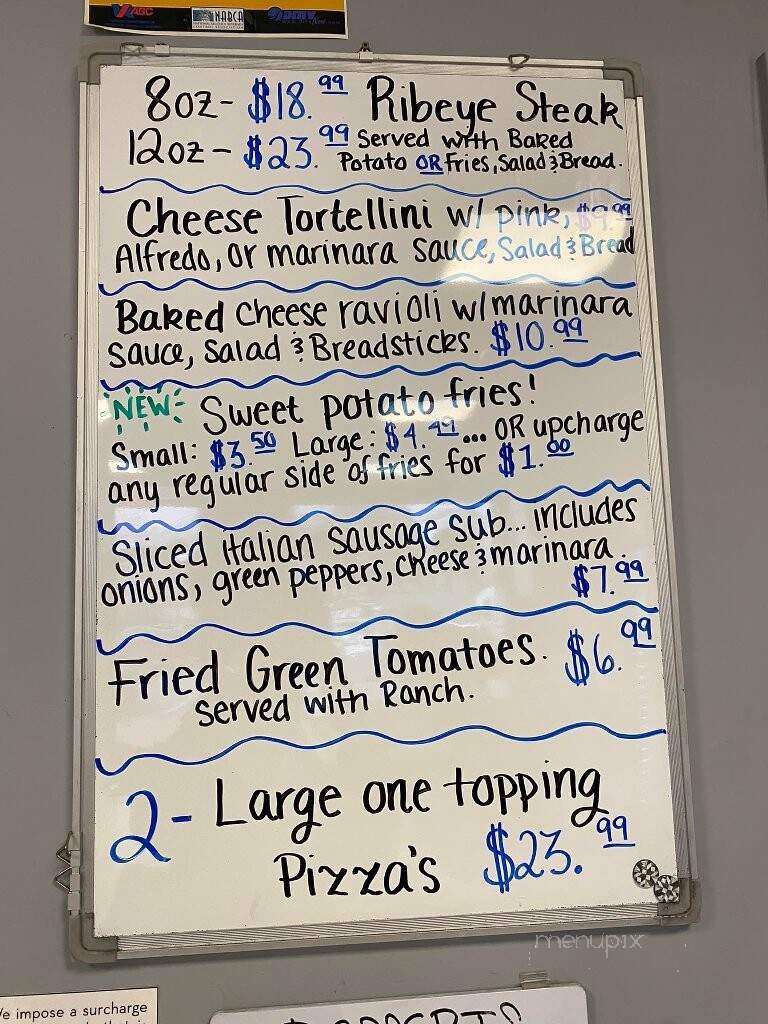 ABC
NABCA
8oz - $18.99 Ribeye Steak
12oz - $23.99 Served with Baked
Potato OR Fries, Salad & Bread.
Cheese Tortellini w/ pink, $9.99
Alfredo, Or marinara sauce, Salad & Bread
Baked cheese ravioli w/marinara
sauce, Salad & Breadsticks. $10.99
NEW Sweet potato fries!
Small: $3.50 Large: $4.99 ... OR upcharge
any regular side of fries for $1.00
Sliced Italian Sausage Sub... includes
onions, green peppers, cheese & marinara.
$7.99
Fried Green Tomatoes. $6.99
Served with Ranch.
2 - Large one topping
Pizza's $23.99
menupix
We impose a surcharge